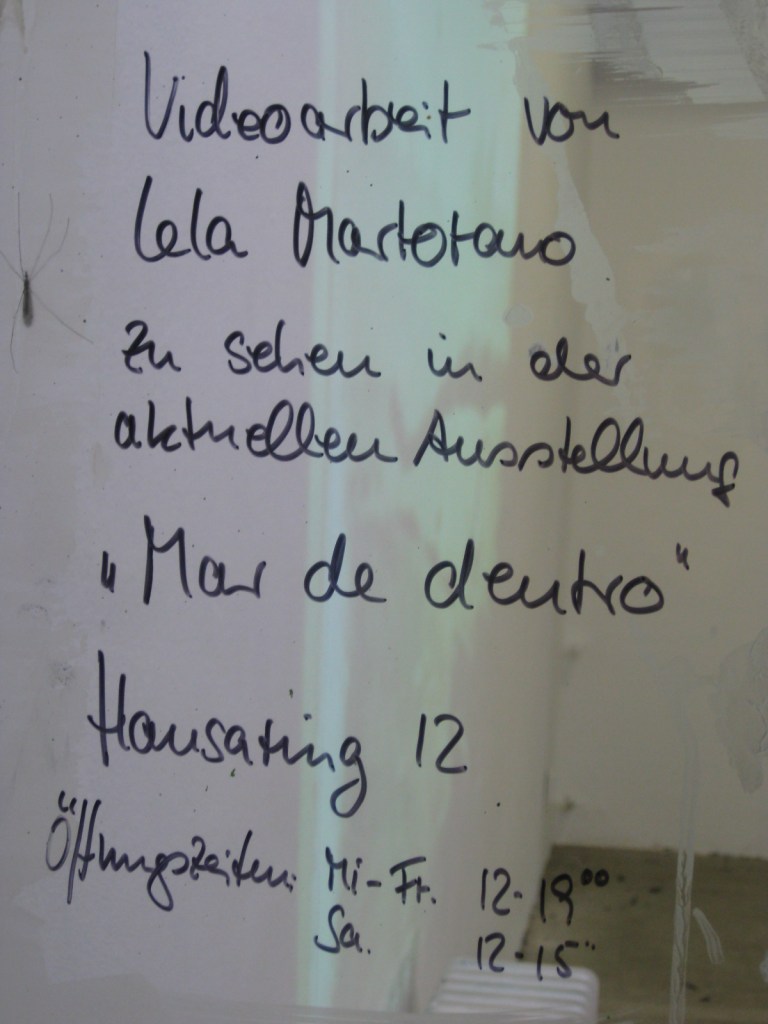 Videoarbeit von
Lela Martorano
zu sehen in der
aktuellen Ausstellung
„Mar de dentro“
Hansaring 12
Öffnungszeiten: Mi-Fr. 12-19⁰⁰
Sa. 12-15¨